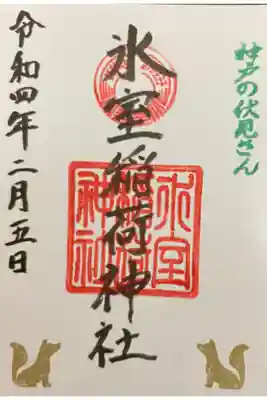 神戸の伏見さん
氷室稲荷神社
令和四年二月五日
氷室
稲荷
神社